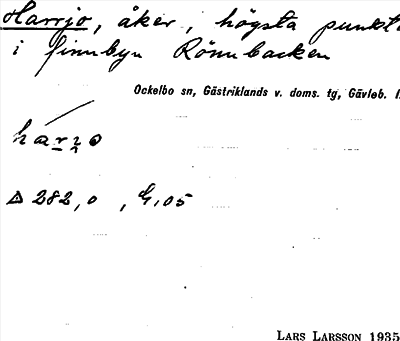 Harrjo, åker, högsta punkt
i finnbyn Rönnbacken
Ockelbo sn, Gästriklands v. doms. tg, Gävleb. l.
harʒo
△ 282,0 , G,05
LARS LARSSON 1935